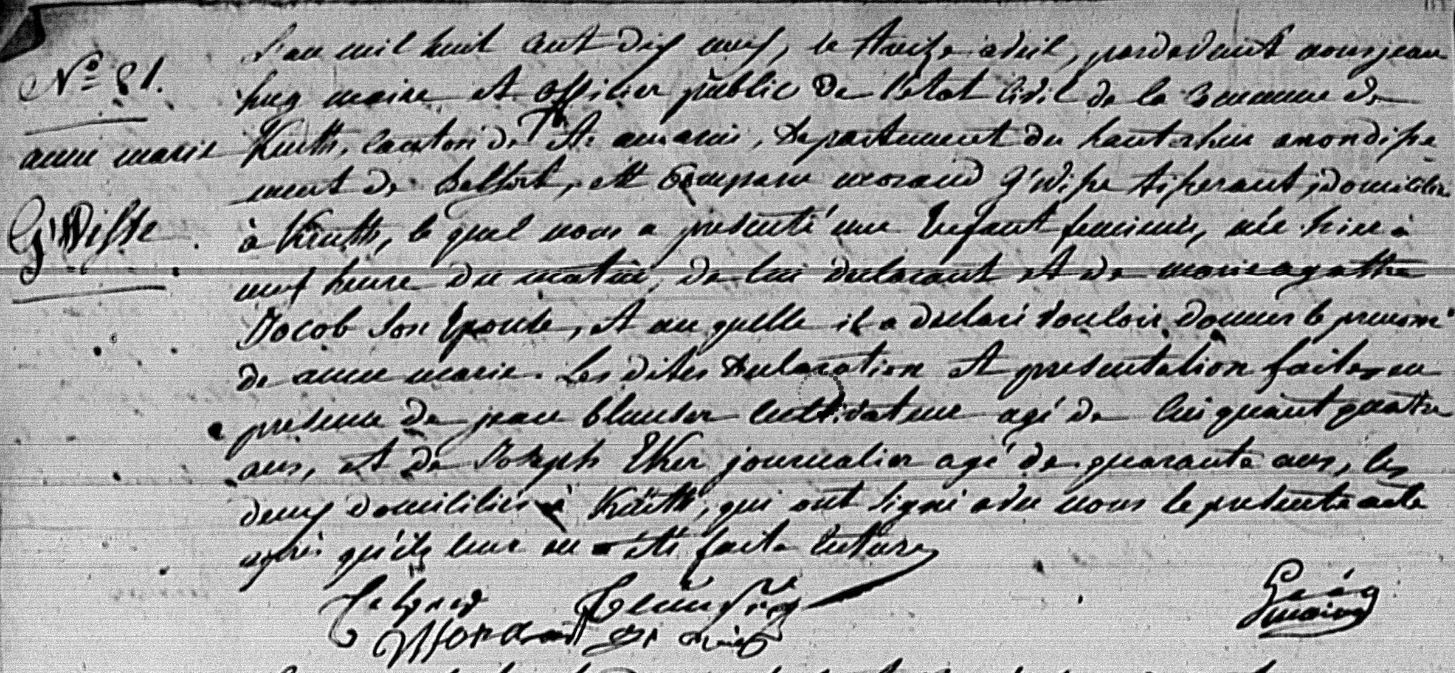 N° 81.
anne marie
G'Wisse
L'an mil huit cent dix neuf, le treize avril, pardevant nous jean
hug maire et officier public de l'état civil de la commune de
Krüth, canton de St. amarin, departement du hautrhin arrondisse
ment de Belfort, est comparu morand G'wisse tisserant, domicilié
à Krüth, le quel nous a presenté une Enfant feminin, née hier à
neuf heure du matin, de lui declarant et de marie agathe
Jacob son Epouse, et au quelle il a declaré vouloir donner le prenom
de anne marie. Les dites declaration et presentation faites en
presence de jean cultivateur agé de cinquant quatre
ans, et de Joseph Eker journalier agé de quarante ans, les
deux domiciliés à Krüth, qui ont signé avec nous le presente acte
après qu'ils leur en a été faite lecture